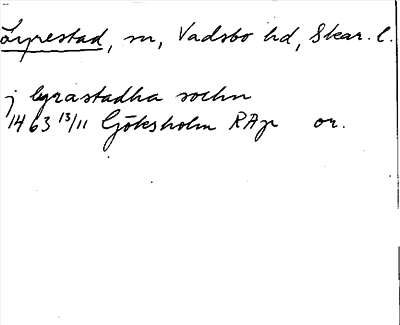 Lyrestad, sn, Vadsbo hd, Skar. l.
j lyrastadha sochn
1463 13/11 Göksholm RAp or.